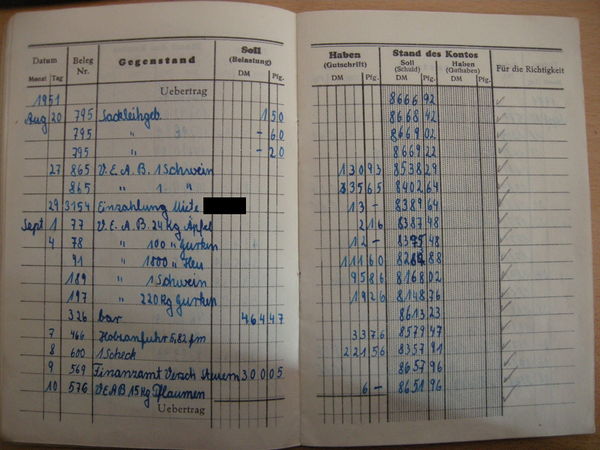 Datum
Monat Tag
Beleg Nr.
Gegenstand
Soll
(Belastung)
DM Pfg.
1951 Uebertrag
Aug 20 795 Sackleihgeb. 1 50
795 " - 60
795 " - 20
27 865 V.E.A.B. 1 Schwein
865 " 1. "
29 3154 Einzahlung Miete
Sept 1 77 V.E.A.B. 24 Kg Äpfel
4 78 " 100 " Gurken
91 " 1800 " Heu
189 " 1 Schwein
197 " 220 Kg Gurken
326 bar 464 47
7 466 Holzanfuhr 5,82 fm
8 600 1 Scheck
9 569 Finanzamt Versch Steuern 300 05
10 576 V.E.A.B 15 Kg Pflaumen
Uebertrag
Haben
(Gutschrift)
DM Pfg.
Stand des Kontos
Soll
(Schuld)
DM Pfg.
Haben
(Guthaben)
DM Pfg.
Für die Richtigkeit
8666 92
8668 42
8669 02
8669 22
130 93 8538 29
135 65 8402 64
13 - 8389 64
2 16 8387 48
12 - 8375 48
111 60 88
95 86 8168 02
19 26 8148 76
8613 23
33 76 8579 47
221 56 8357 91
8657 96
6 - 8651 96